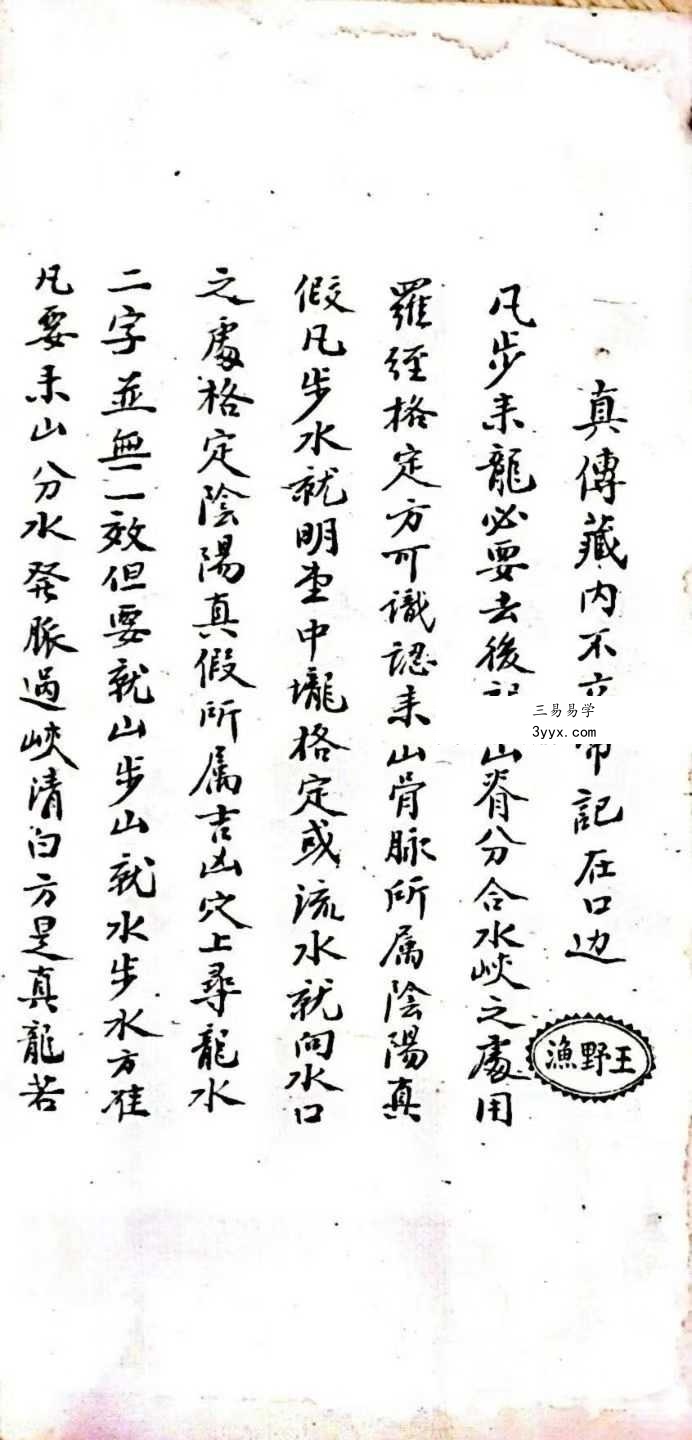 真傳藏內不立 記在口边
凡步耒龍必要去後 山脊分合水峽之處用
羅經格定方可識認耒山骨脉所属陰陽真
假凡步水就明堂中壠格定或流水就向水口
之處格定陰陽真假所属吉凶穴上尋龍水
二字並無一效但要就山步山就水步水方准
凡要耒山分水発脈過峽清白方是真龍若
三易易学
3yyx.com
漁野王